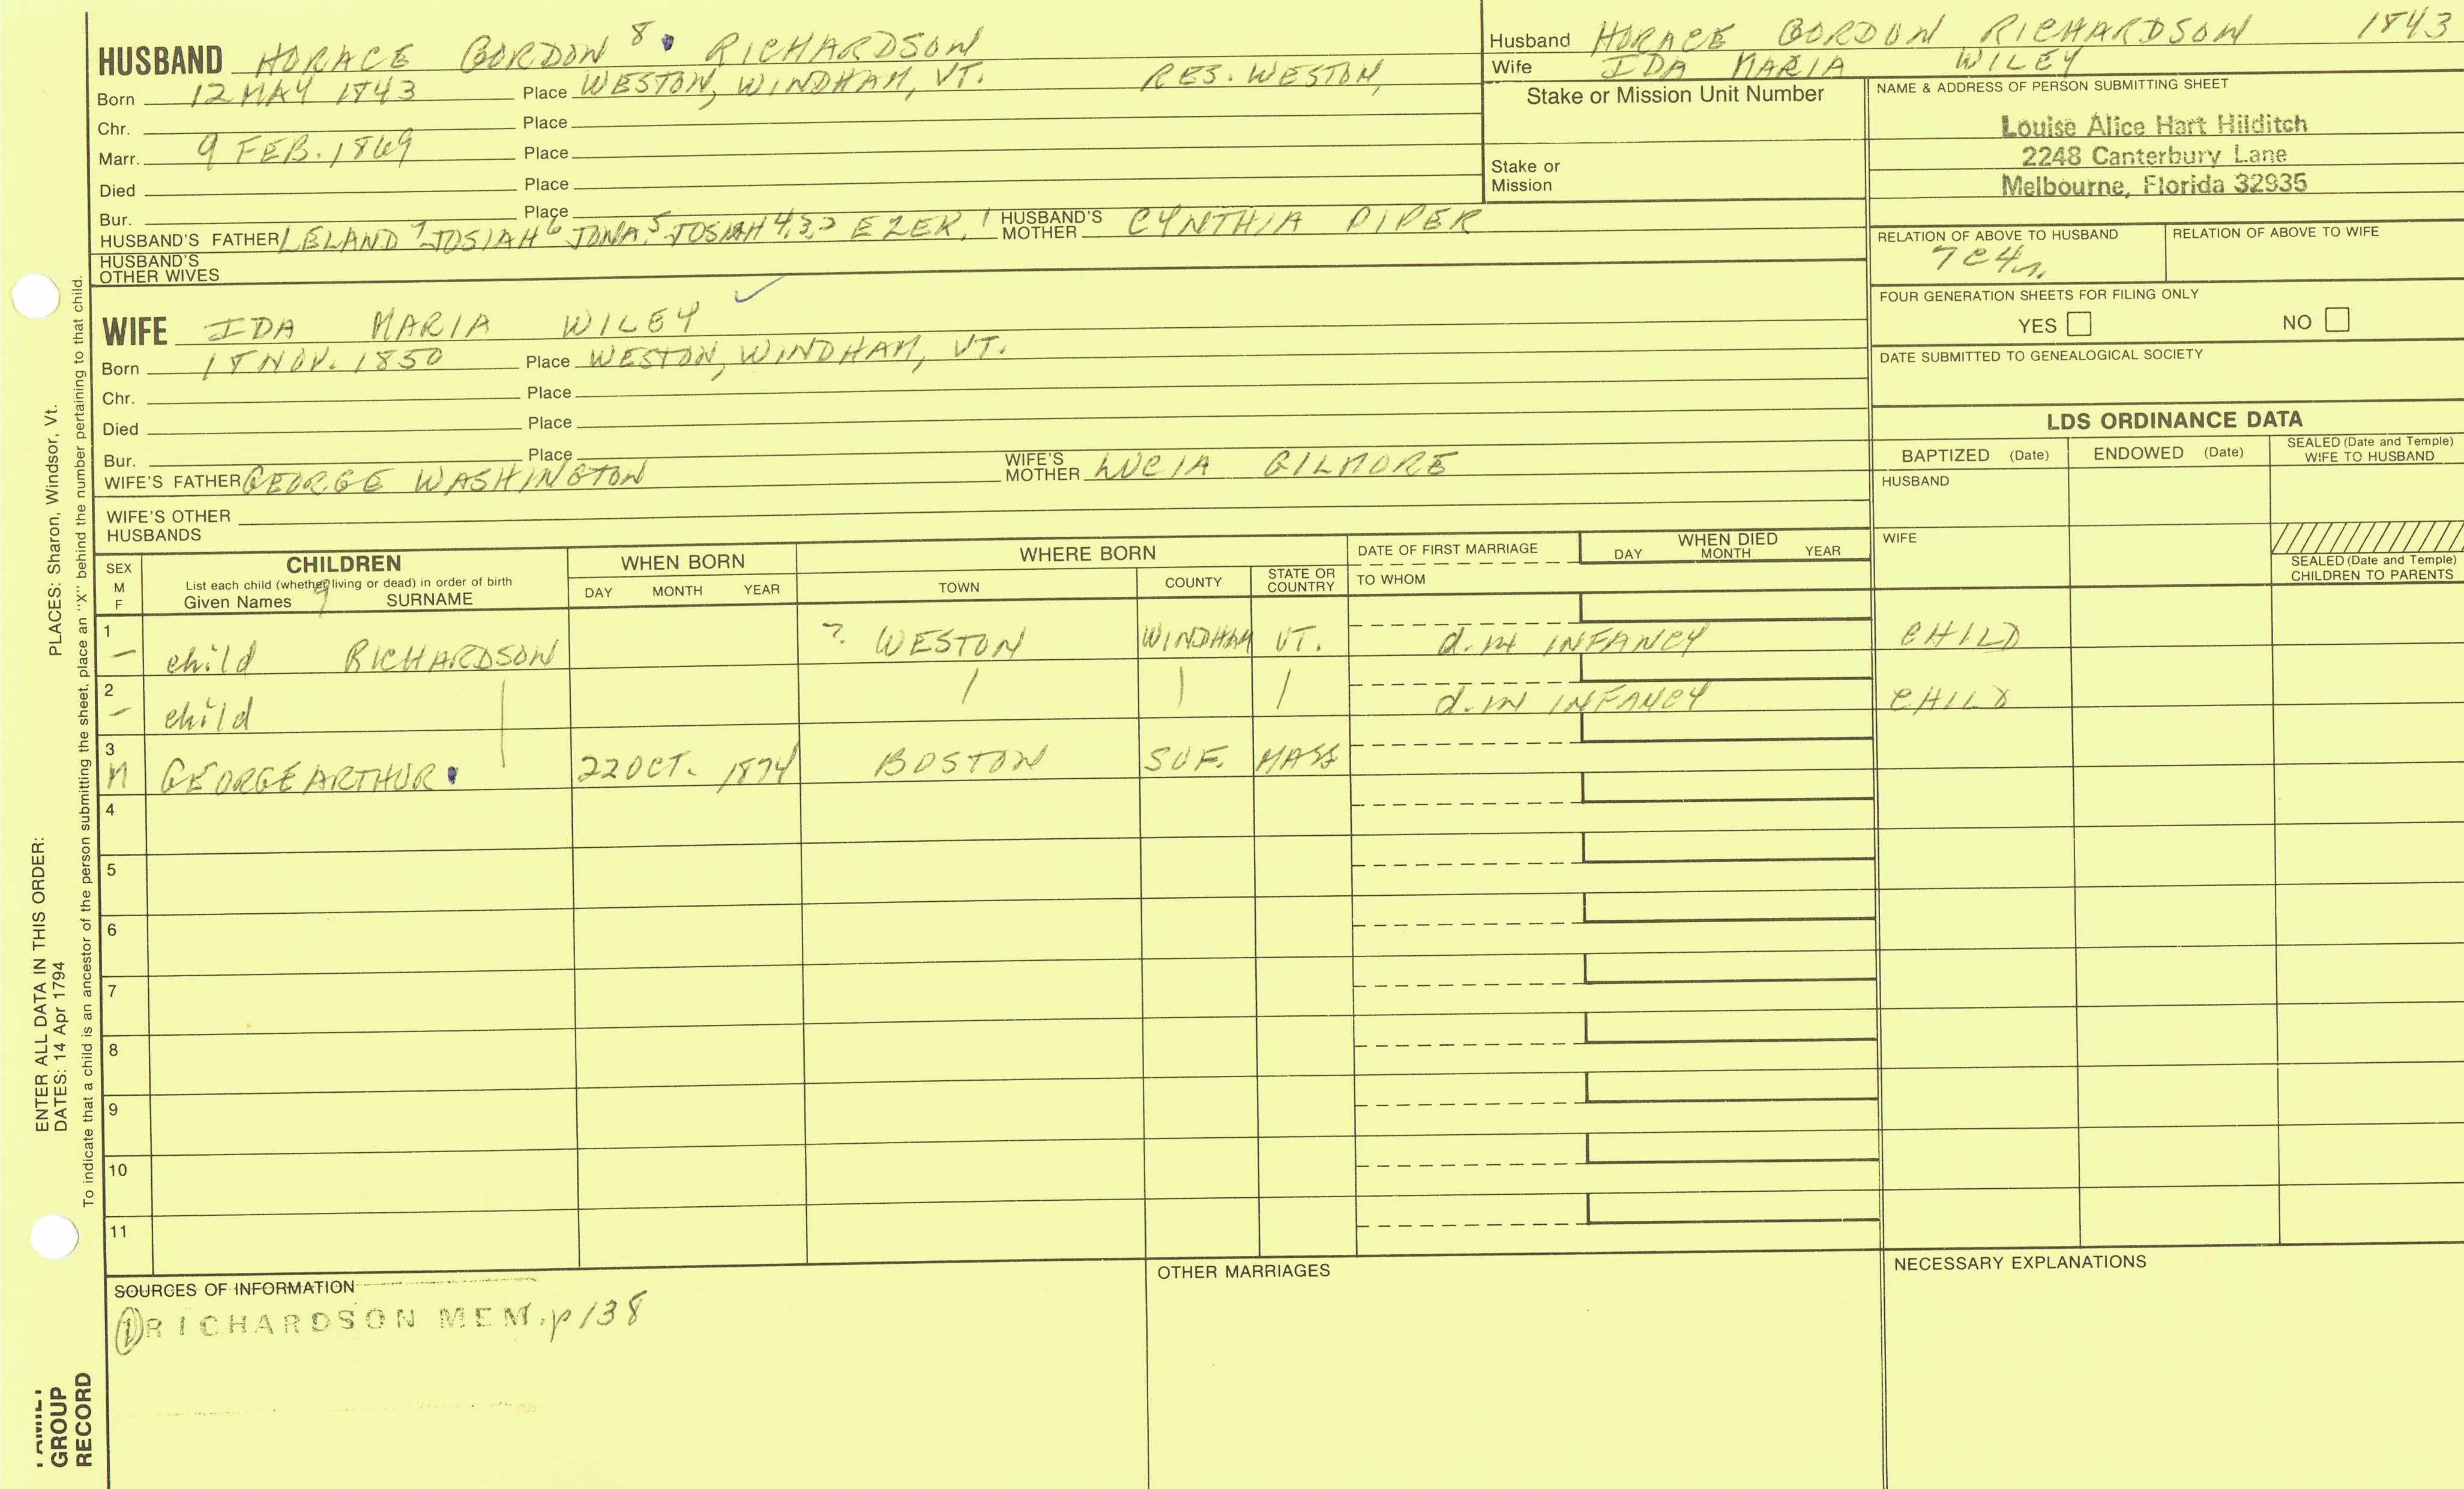 HUSBAND HORACE GORDON 8 RICHARDSON
Born 12 MAY 1843 Place WESTON, WINDHAM, VT. RES. WESTON,
Chr. Place
Marr. 9 FEB. 1869 Place
Died Place
Bur. Place
HUSBAND'S FATHER LELAND 7 JOSIAH 6 JONA. 5 JOSIAH 4,3,2 EZEK. 1 HUSBAND'S MOTHER CYNTHIA PIPER
HUSBAND'S OTHER WIVES
Husband HORACE GORDON RICHARDSON 1843
Wife IDA MARIA WILEY
Stake or Mission Unit Number
Stake or Mission
NAME & ADDRESS OF PERSON SUBMITTING SHEET
Louise Alice Hart Hilditch
2248 Canterbury Lane
Melbourne, Florida 32935
RELATION OF ABOVE TO HUSBAND RELATION OF ABOVE TO WIFE
7C4r.
FOUR GENERATION SHEETS FOR FILING ONLY
YES NO
DATE SUBMITTED TO GENEALOGICAL SOCIETY
WIFE IDA MARIA WILEY
Born 18 NOV. 1850 Place WESTON, WINDHAM, VT.
Chr. Place
Died Place
Bur. Place
WIFE'S FATHER GEORGE WASHINGTON WIFE'S MOTHER LUCIA GILMORE
WIFE'S OTHER HUSBANDS
LDS ORDINANCE DATA
BAPTIZED (Date) ENDOWED (Date) SEALED (Date and Temple) WIFE TO HUSBAND
HUSBAND
WIFE
SEALED (Date and Temple) CHILDREN TO PARENTS
SEX M F CHILDREN WHEN BORN WHERE BORN DATE OF FIRST MARRIAGE WHEN DIED
List each child (whether living or dead) in order of birth
9
Given Names SURNAME DAY MONTH YEAR TOWN COUNTY STATE OR COUNTRY TO WHOM DAY MONTH YEAR
1 – child RICHARDSON ? WESTON WINDHAM VT. d. in INFANCY CHILD
2 – child | / | / d. in INFANCY CHILD
3 M GEORGE ARTHUR 22 OCT. 1874 BOSTON SUF. MASS
4
5
6
7
8
9
10
11
SOURCES OF INFORMATION
① RICHARDSON MEM. p 138
OTHER MARRIAGES
NECESSARY EXPLANATIONS
ENTER ALL DATA IN THIS ORDER:
DATES: 14 Apr 1794 PLACES: Sharon, Windsor, Vt.
To indicate that a child is an ancestor of the person submitting the sheet, place an "X" behind the number pertaining to that child.
FAMILY
GROUP
RECORD